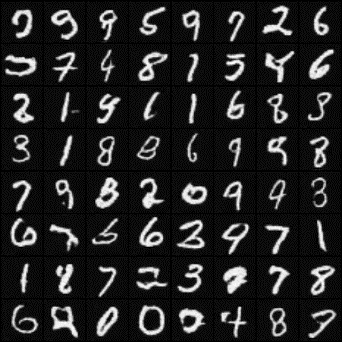 9 9 5 9 7 2 6
7 4 8 1 5 4 6
2 1 9 1 1 6 8 9
3 1 8 8 6 9 9 8
7 9 8 2 0 9 4 3
6 5 6 2 9 7 1
1 4 7 2 3 2 7 8
6 0 0 2 4 8 7